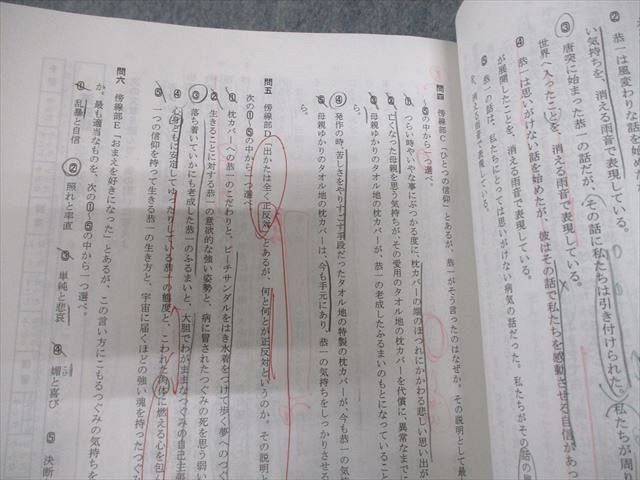 ② 恭一は風変わりな話
い気持ちを、消える雨音で表現している。
③ 唐突に始まった恭一の話だが、その話に私たちは引き付けられた。私たちが周り
世界へ入ったことを、消える雨音で表現している。
④ 恭一は思いがけない話を始めたが、彼はその話で私たちを感動させる自信があっ
が展開したことを、消える雨音で表現している。
⑤ 恭一の話は、私たちにとっては思いがけない病気の話だった。私たちがその話の
、消える雨音で表現している。
問四 傍線部C「ひとつの信仰」とあるが、恭一がそう言ったのはなぜか。その説明として最
⑤の中から一つ選べ。
① つらい時やいやな事にぶつかる度に、枕カバーの端のほつれにかかわる悲しい思い出が
② 亡くなった母親を思う気持ちが、その愛用のタオル地の枕カバーを代償に、異常なまでに
③ 母親ゆかりのタオル地の枕カバーが、恭一の老成したふるまいのもとになっていること
ら。
④ 発作の時、苦しさをやりすごす手段だったタオル地の特製の枕カバーが、今も恭一の気
ら。
⑤ 母親ゆかりのタオル地の枕カバーは、今も手元にあり、恭一の気持ちをしっかりさせる
問五 傍線部D「出かたは全く正反対」とあるが、何と何とが正反対というのか。その説明と
次の①~⑤の中から一つ選べ。
① 枕カバーへの恭一のこだわりと、ビーチサンダルをはき水着をつけて歩く夢へのつぐ
② 生きることに対する恭一の意欲的な強い姿勢と、病に冒されたつぐみの死を思う弱い
③ 落ち着いていかにも老成した恭一のふるまいと、大胆でわがままなつぐみの自己主
④ 心身ともに安定してゆったりしている恭一の態度と、こわれた肉体に燃える心を包ん
⑤ 一つの信仰を持って生きる恭一の生き方と、宇宙に届くほどの強い魂を持ったつぐみ
問六 傍線部E「おまえを好きになった」とあるが、この言い方にこもるつぐみの気持ちを
か。最も適当なものを、次の①~⑤の中から一つ選べ。
① 乱暴と自信 ② 照れと率直 ③ 単純と悲哀 ④ 媚と喜び ⑤ 決断